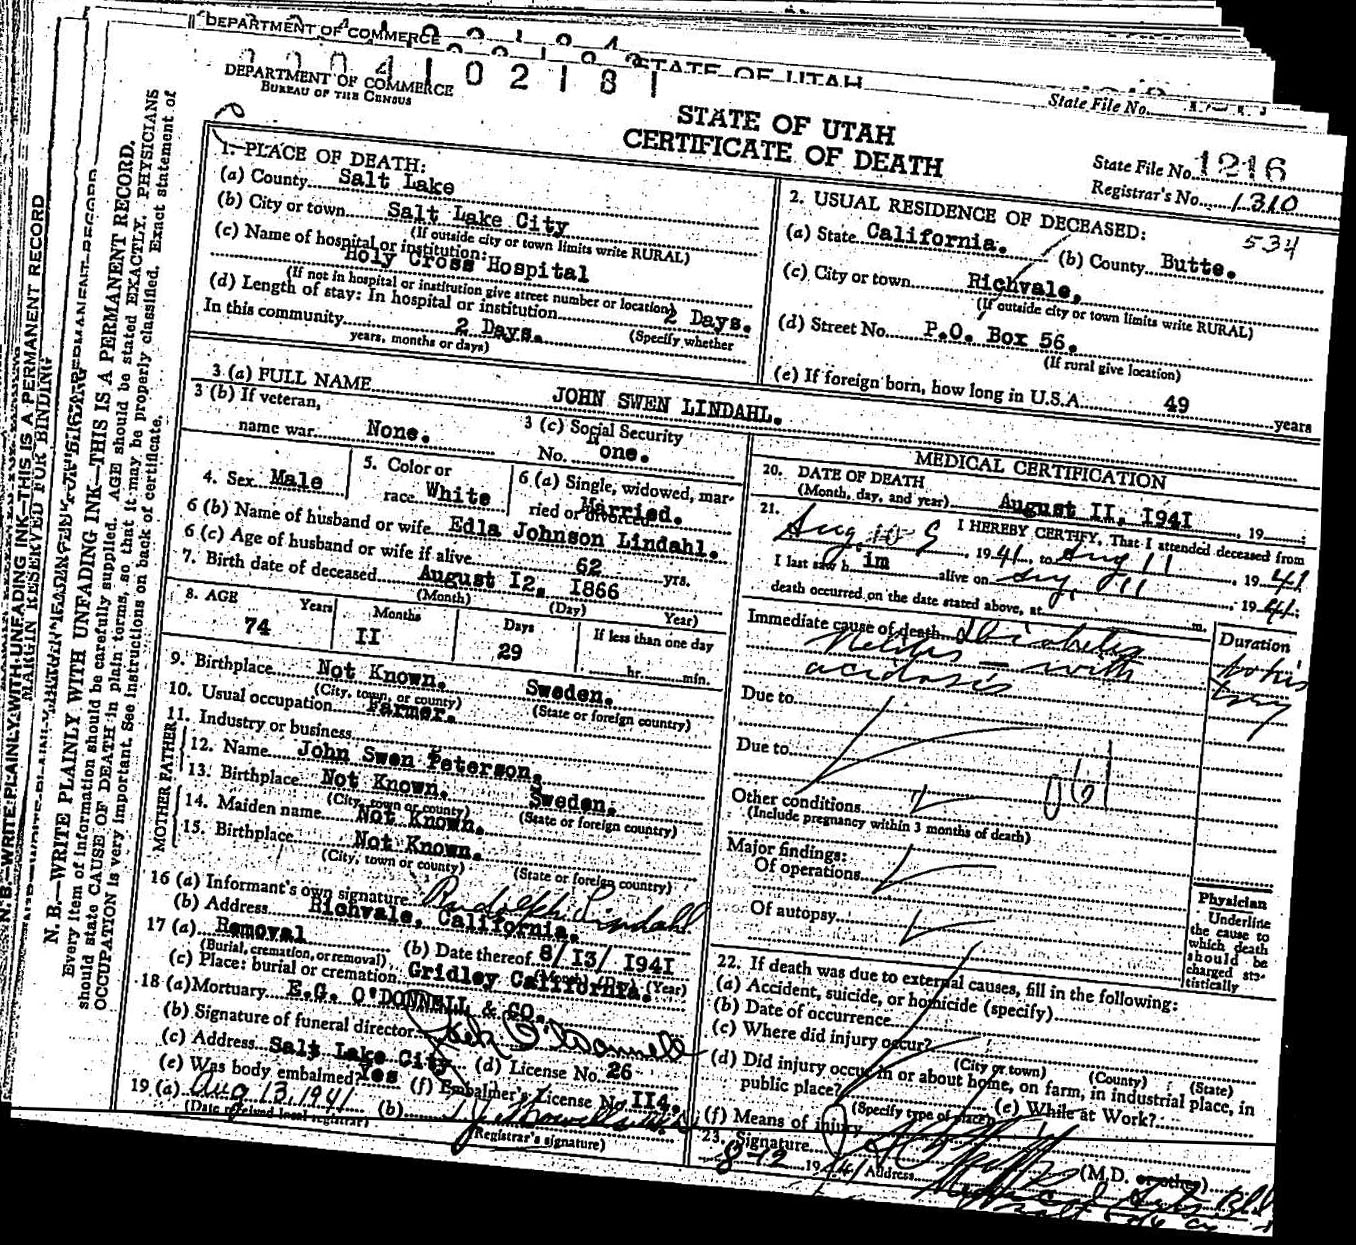 DEPARTMENT OF COMMERCE
STATE OF UTAH
State File No.
004102181
DEPARTMENT OF COMMERCE
BUREAU OF THE CENSUS
STATE OF UTAH
CERTIFICATE OF DEATH
State File No. 1216
Registrar's No. 1310
1. PLACE OF DEATH:
(a) County Salt Lake
(b) City or town Salt Lake City
(If outside city or town limits write RURAL)
(c) Name of hospital or institution:
Holy Cross Hospital
(If not in hospital or institution give street number or location)
(d) Length of stay: In hospital or institution 2 Days.
(Specify whether
In this community 2 Days.
years, months or days)
2. USUAL RESIDENCE OF DECEASED: 534
(a) State California. (b) County Butte.
(c) City or town Richvale,
(If outside city or town limits write RURAL)
(d) Street No. P.O. Box 56.
(If rural give location)
(e) If foreign born, how long in U.S.A. 49 years
3 (a) FULL NAME JOHN SWEN LINDAHL.
3 (b) If veteran,
name war None.
3 (c) Social Security
No. None.
4. Sex Male
5. Color or
race White
6 (a) Single, widowed, mar-
ried or divorced Married.
6 (b) Name of husband or wife Edla Johnson Lindahl.
6 (c) Age of husband or wife if alive 62 yrs.
7. Birth date of deceased August I2, I866
(Month) (Day) Year)
8. AGE Years Months Days If less than one day
74 II 29 hr. min.
9. Birthplace Not Known. Sweden.
(City, town, or county) (State or foreign country)
10. Usual occupation Farmer.
11. Industry or business
FATHER
12. Name John Swen Peterson.
13. Birthplace Not Known. Sweden.
(City, town or county) (State or foreign country)
MOTHER
14. Maiden name Not Known.
15. Birthplace Not Known.
(City, town or county) (State or foreign country)
16 (a) Informant's own signature Randolph Lindahl
(b) Address Richvale, California.
17 (a) Removal (b) Date thereof 8/ I3/ I94I
(Burial, cremation, or removal) (Month) (Day) (Year)
(c) Place: burial or cremation Gridley California.
18 (a) Mortuary E.G. O'DONNELL & CO.
(b) Signature of funeral director
(c) Address Salt Lake City (d) License No. 26
(e) Was body embalmed? Yes (f) Embalmer's License No. II4.
19 (a) Aug 13, 1941 (b)
(Date received local registrar) (Registrar's signature)
MEDICAL CERTIFICATION
20. DATE OF DEATH
(Month, day, and year) August II, I94I 19
21. I HEREBY CERTIFY, That I attended deceased from
Aug 1941 to Aug 11, 1941
I last saw him alive on Aug 11 1941
death occurred on the date stated above, at m.
Immediate cause of death Diabetes
Melitus - with
acidosis
Duration
Due to
Due to
061
Other conditions
(Include pregnancy within 3 months of death)
Major findings:
Of operations
Of autopsy
Physician
Underline
the cause to
which death
should be
charged sta-
tistically
22. If death was due to external causes, fill in the following:
(a) Accident, suicide, or homicide (specify)
(b) Date of occurrence
(c) Where did injury occur?
(City or town) (County) (State)
(d) Did injury occur in or about home, on farm, in industrial place, in
public place?
(Specify type of place) (e) While at Work?
(f) Means of injury
23. Signature (M.D. or other)
8-12 1941 Address
N. B.—WRITE PLAINLY WITH UNFADING INK—THIS IS A PERMANENT RECORD.
Every item of information should be carefully supplied. AGE should be stated EXACTLY. PHYSICIANS
should state CAUSE OF DEATH in plain terms, so that it may be properly classified. Exact statement of
OCCUPATION is very important. See instructions on back of certificate.
MARGIN RESERVED FOR BINDING
N. B.—WRITE PLAINLY WITH UNFADING INK—THIS IS A PERMANENT RECORD